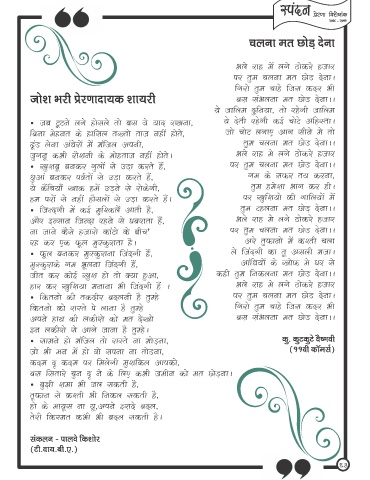 स्पंदन
चलना मत छोड़ देना
भले राह में लगे ठोकरे हजार
पर तुम चलना मत छोड़ देना।
गिरो तुम चाहे जिस कदर भी
बस संभलना मत छोड़ देना।।
ये जालिम दुनिया, तो रहेगी जालिम
ये देती रहेगी कई चोटे अहिस्ता।
जो चोट लगाए आग सीने मे तो
तुम चलना मत छोड़ देना।।
भले राह मे लगे ठोकरे हजार
पर तुम चलना मत छोड़ देना।।
गम के सफर तय करना,
तुम हमेशा भाग कर ही।
पर खुशियो की गलियों में
तुम टहलना मत छोड़ देना।।
भले राह मे लगे ठोकरे हजार
पर तुम चलना मत छोड़ देना।।
अरे तुफानो में कश्ती चला
ले जिंदगी का तु असली मजा।
आँधियों के खौफ मे घर से
कही तुम निकलना मत छोड़ देना।।
भले राह मे लगे ठोकरे हजार
पर तुम चलना मत छोड़ देना।
गिरो तुम चाहे जिस कदर भी
बस संभलना मत छोड़ देना।।
कु. कुटकुटे वैष्णवी
(११वी कॉमर्स)
जोश भरी प्रेरणादायक शायरी
• जब टूटने लगे होसले तो बस ये याद रखना,
बिना मेहनत के हासिल तख्तो ताज नहीं होते,
ढूंढ लेना अंधेरों में मंजिल अपनी,
जुगनू कभी रोशनी के मोहताज नहीं होते।
• खुशबू बनकर गुलों से उड़ा करते हैं,
धुआं बनकर पर्वतों से उड़ा करते हैं,
ये कैंचियाँ खाक हमें उडने से रोकेगी,
हम परों से नहीं होसलों से उड़ा करते हैं।
• जिन्दगी में कई मुश्किलें आती है,
और इन्सान जिन्दा रहने से घबराता हैं,
ना जाने कैसे हजारो कांटो के बीच'
रह कर एक फूल मुस्कुराता हैं।
• फूल बनकर मुस्कुराना जिंदगी हैं,
मुस्कुराके गम भूलना जिंदगी हैं,
जीत कर कोई खुश हो तो क्या हुआ,
हार कर खुशिया मनाना भी जिंदगी हैं ।
• कितनो की तकदीर बदलनी है तुम्हे
कितनो को रास्ते पे लाना हैं तुम्हे
अपने हाथ की लकीरो को मत देखो
इन लकीरो से आगे जाना हैं तुम्हे।
• सामने हो मंजिल तो रास्ते ना मोड़ना,
जो भी मन में हो वो सपना ना तोड़ना,
कदम द कदम पर मिलेगी मुश्किल आपको,
बस सितारे चुन द ने के लिए कभी जमीन को मत छोड़ना।
• बुझी शमा भी जल सकती है,
तुफान से कश्ती भी निकल सकती है,
हो के मायूस ना यू,अपने इरादे बदल,
तेरी किस्मत कभी भी बदल सकती है।
संकलन - पालवे किशोर
(टी.वाय.बी.ए.)